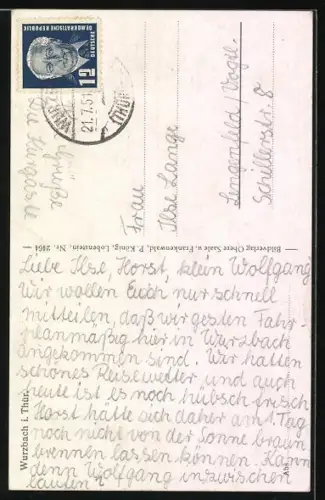 Liebe Ilse, Horst, klein Wolfgang
Wir wollen Euch nur schnell
mitteilen, daß wir gestern Fahr-
planmäßig hier in Wurzbach
angekommen sind. Wir hatten
schönes Reisewetter, und auch
heute ist es noch hübsch frisch
Horst hätte sich daher am 1. Tag
noch nicht von der Sonne braun
brennen lassen können. Kann
denn Wolfgang inzwischen
laufen?
Grüße
Die Kurgäste
Wurzbach i. Thür.
Abs.
Bildverlag Obere Saale u. Frankenwald, P. König, Lobenstein, Nr. 2464
DEUTSCHE
DEMOKRATISCHE REPUBLIK
12
21.7.51
(THÜR)
Frau
Ilse Lange
Lengenfeld/Vogtl.
Schillerstr. 8